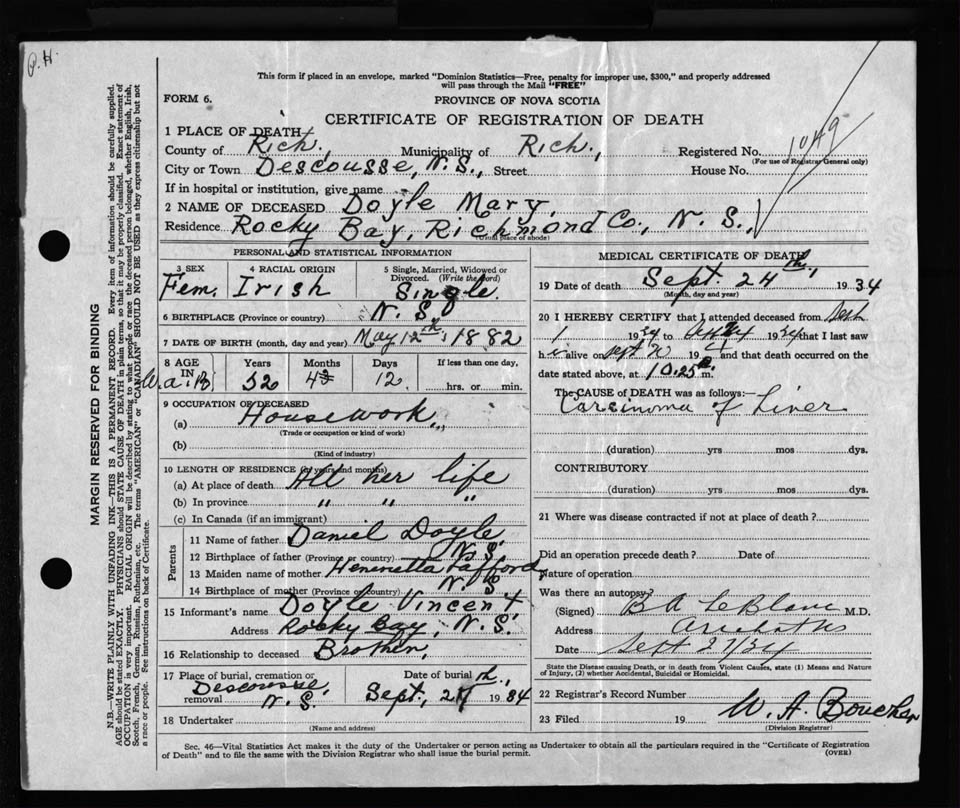 P.H.
This form if placed in an envelope, marked "Dominion Statistics—Free, penalty for improper use, $300," and properly addressed
will pass through the Mail "FREE"
FORM 6.
PROVINCE OF NOVA SCOTIA
CERTIFICATE OF REGISTRATION OF DEATH
1049
1 PLACE OF DEATH
County of Rich., Municipality of Rich., Registered No.
(For use of Registrar General only)
City or Town Descousse, N.S., Street House No.
If in hospital or institution, give name
2 NAME OF DECEASED Doyle Mary,
Residence Rocky Bay, Richmond Co., N.S.,
(Usual place of abode)
PERSONAL AND STATISTICAL INFORMATION
3 SEX Fem.
4 RACIAL ORIGIN Irish
5 Single, Married, Widowed or Divorced. (Write the word) Single.
6 BIRTHPLACE (Province or country) N.S.
7 DATE OF BIRTH (month, day and year) May 12th, 1882
8 AGE IN Years 52 Months 4 Days 12. If less than one day, hrs. or min.
9 OCCUPATION OF DECEASED
(a) Housework,
(Trade or occupation or kind of work)
(b)
(Kind of industry)
10 LENGTH OF RESIDENCE (in years and months)
(a) At place of death All her life
(b) In province " " "
(c) In Canada (if an immigrant)
Parents
11 Name of father Daniel Doyle,
12 Birthplace of father (Province or country) N.S.
13 Maiden name of mother Henerietta
14 Birthplace of mother (Province or country) N.S.
15 Informant's name Doyle Vincent,
Address Rocky Bay, N.S.
16 Relationship to deceased Brother,
17 Place of burial, cremation or removal Descousse, N.S.
Date of burial Sept. 1934
18 Undertaker
(Name and address)
MEDICAL CERTIFICATE OF DEATH
19 Date of death Sept. 24th, 1934
(Month, day and year)
20 I HEREBY CERTIFY that I attended deceased from Sept
1 1934 to 1934 that I last saw
h alive on Sept 20 19 and that death occurred on the
date stated above, at 10.25 m.
The CAUSE of DEATH was as follows:—
Carcinoma of Liver
(duration) yrs mos dys.
CONTRIBUTORY
(duration) yrs mos dys.
21 Where was disease contracted if not at place of death?
Did an operation precede death? Date of
Nature of operation
Was there an autopsy?
(Signed) B A LeBlanc M.D.
Address
Date Sept 27/34
State the Disease causing Death, or in death from Violent Causes, state (1) Means and Nature
of Injury, (2) whether Accidental, Suicidal or Homicidal.
22 Registrar's Record Number
23 Filed 19 W. A. Boucher
(Division Registrar)
Sec. 46—Vital Statistics Act makes it the duty of the Undertaker or person acting as Undertaker to obtain all the particulars required in the "Certificate of Registration
of Death" and to file the same with the Division Registrar who shall issue the burial permit.
(OVER)
MARGIN RESERVED FOR BINDING
N.B.—WRITE PLAINLY WITH UNFADING INK—THIS IS A PERMANENT RECORD. Every item of information should be carefully supplied.
AGE should be stated EXACTLY. PHYSICIANS should STATE CAUSE OF DEATH in plain terms, so that it may be properly classified. Exact statement of
OCCUPATION is very important. RACIAL ORIGIN will be described by stating to what people or race the deceased person belonged, whether English, Irish,
Scotch, French, German, Russian, Ruthenian, etc. The terms "AMERICAN" or "CANADIAN" SHOULD NOT BE USED as they express citizenship but not
a race or people. See instructions on back of Certificate.